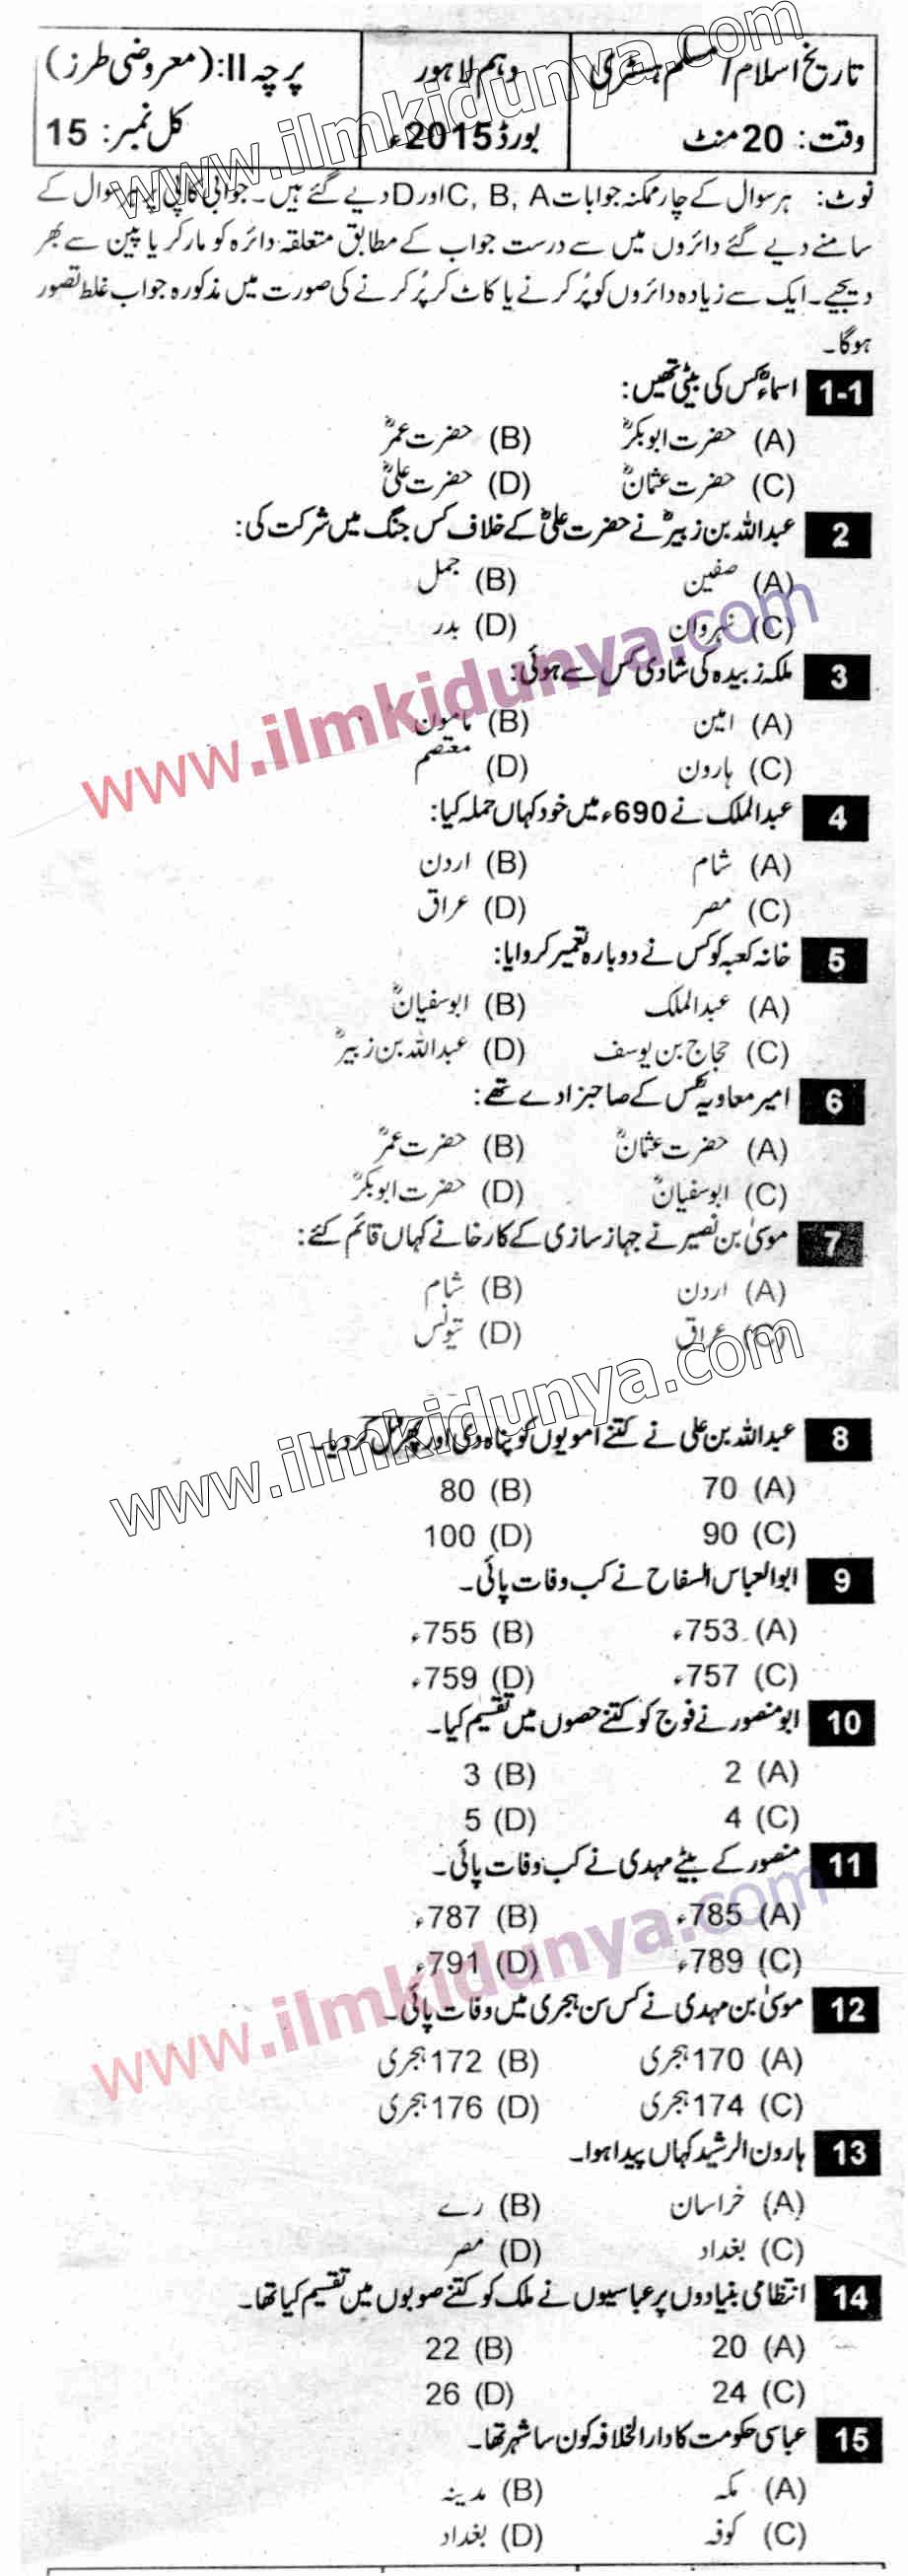 تاریخ اسلام / مسلم ہسٹری
دہم لاہور
پرچہ II: (معروضی طرز)
وقت: 20 منٹ
بورڈ 2015ء
کل نمبر: 15
نوٹ: ہر سوال کے چار ممکنہ جوابات C, B, A اور D دیے گئے ہیں۔ جوابی کاپی پر ہر سوال کے
سامنے دیے گئے دائروں میں سے درست جواب کے مطابق متعلقہ دائرہ کو مارکر یا پین سے بھر
دیجیے۔ ایک سے زیادہ دائروں کو پُر کرنے یا کاٹ کر پُر کرنے کی صورت میں مذکورہ جواب غلط تصور
ہوگا۔
1-1 اسماءؓ کس کی بیٹی تھیں:
(A) حضرت ابوبکرؓ (B) حضرت عمرؓ
(C) حضرت عثمانؓ (D) حضرت علیؓ
2 عبداللہ بن زبیرؓ نے حضرت علیؓ کے خلاف کس جنگ میں شرکت کی:
(A) صفین (B) جمل
(C) نہروان (D) بدر
3 ملکہ زبیدہ کی شادی کس سے ہوئی:
(A) امین (B) مامون
(C) ہارون (D) معتصم
4 عبدالملک نے 690ء میں خود کہاں حملہ کیا:
(A) شام (B) اردن
(C) مصر (D) عراق
5 خانہ کعبہ کو کس نے دوبارہ تعمیر کروایا:
(A) عبدالملک (B) ابوسفیانؓ
(C) حجاج بن یوسف (D) عبداللہ بن زبیرؓ
6 امیر معاویہؓ کس کے صاحبزادے تھے:
(A) حضرت عثمانؓ (B) حضرت عمرؓ
(C) ابوسفیانؓ (D) حضرت ابوبکرؓ
7 موسیٰ بن نصیر نے جہاز سازی کے کارخانے کہاں قائم کئے:
(A) اردن (B) شام
(C) عراق (D) تیونس
8 عبداللہ بن علی نے کتنے امویوں کو پناہ دی اور پھر قتل کر دیا۔
(A) 70 (B) 80
(C) 90 (D) 100
9 ابوالعباس السفاح نے کب وفات پائی۔
(A) 753ء (B) 755ء
(C) 757ء (D) 759ء
10 ابو منصور نے فوج کو کتنے حصوں میں تقسیم کیا۔
(A) 2 (B) 3
(C) 4 (D) 5
11 منصور کے بیٹے مہدی نے کب وفات پائی۔
(A) 785ء (B) 787ء
(C) 789ء (D) 791ء
12 موسیٰ بن مہدی نے کس سن ہجری میں وفات پائی۔
(A) 170 ہجری (B) 172 ہجری
(C) 174 ہجری (D) 176 ہجری
13 ہارون الرشید کہاں پیدا ہوا۔
(A) خراسان (B) رے
(C) بغداد (D) مصر
14 انتظامی بنیادوں پر عباسیوں نے ملک کو کتنے صوبوں میں تقسیم کیا تھا۔
(A) 20 (B) 22
(C) 24 (D) 26
15 عباسی حکومت کا دارالخلافہ کون سا شہر تھا۔
(A) مکہ (B) مدینہ
(C) کوفہ (D) بغداد
www.ilmkidunya.com
www.ilmkidunya.com
www.ilmkidunya.com
www.ilmkidunya.com